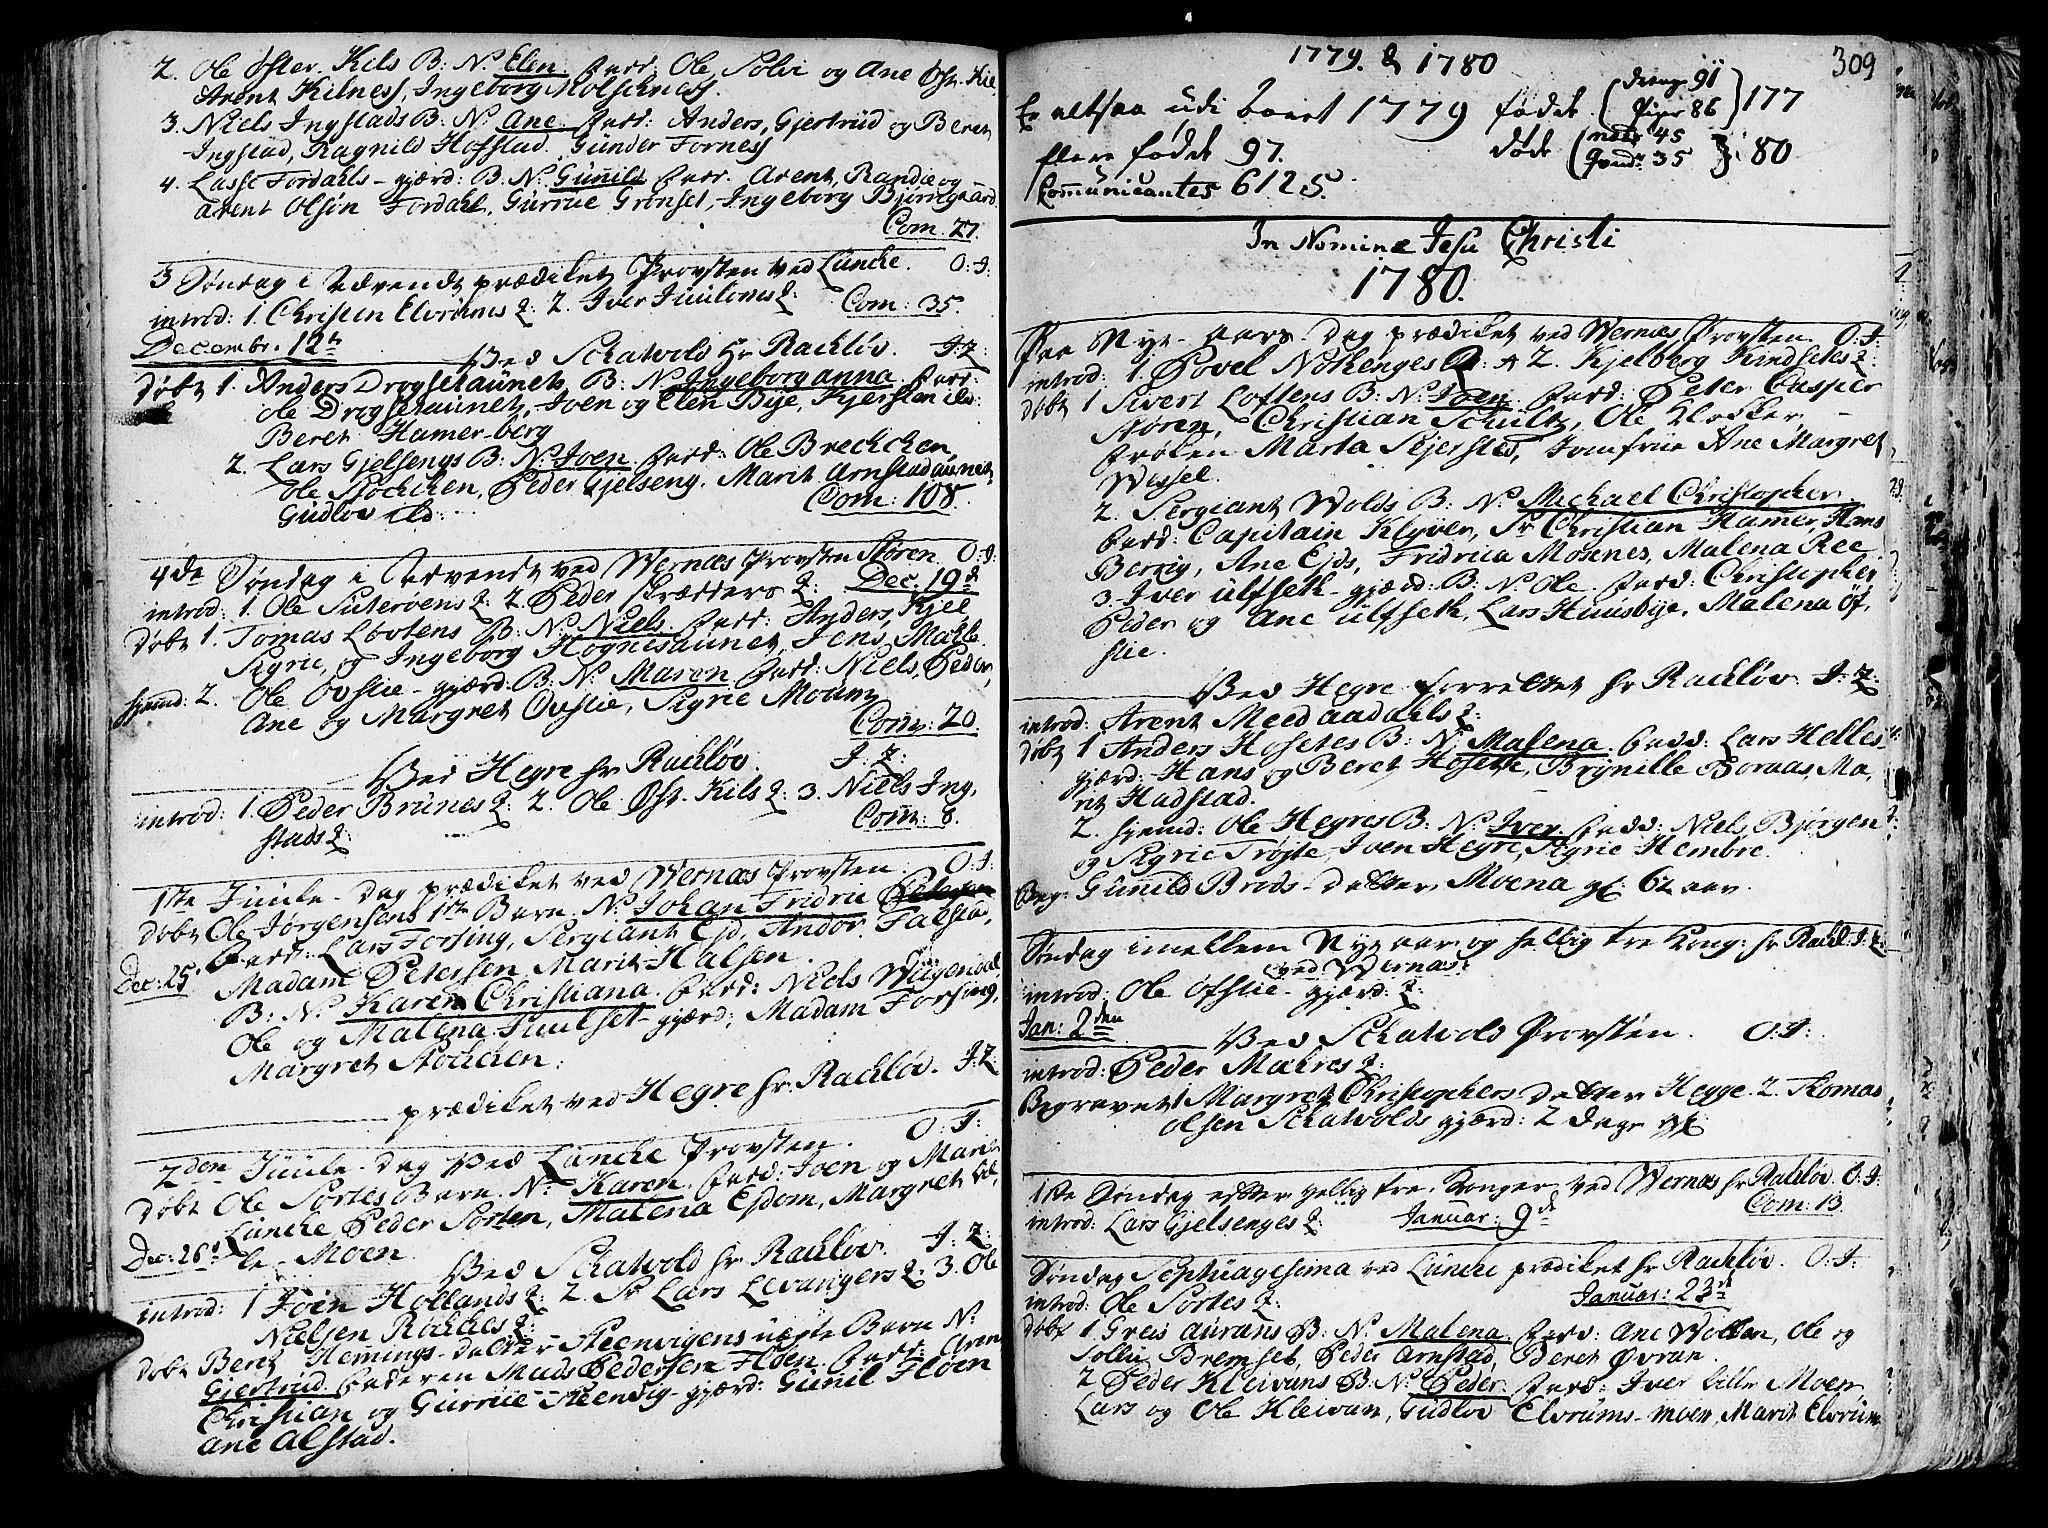 2. Ole Øster-Kils B: N. Elen. fadd. Ole, Solvi og Ane Øst-Kil
Arent Kilness, Ingeborg Holschness.
3. Niels Ingstads B: N. Ane. fadd: Anders, Gjertrud og Beret
Ingstad, Ragnild Hofstad. Günder Forness
4. Lasse Fordahls-gjærd: B. N. Gunild fadd. Arent, Randie og
Arent Olsön Fordahl, Gurrue Grönset, Ingeborg Björngaard.
Com. 27.
3 Søndag i Advendt prædiket Provsten ved Lüncke. O: J:
introd: 1. Christen Elvrans q: 2. Iver Juuloms q: Com: 35.
Decembr. 12te
Ved Schatvold hr Rachløv. J: Z:
døbt 1. Anders Drogsetaunets B: N. Ingeborg anna fadd:
Ole Drogsetaunet, Joen og Elen Bye, Kjersten ibd:
Beret Hamer-berg
2. Lars Gjelsengs B: N. Joen. fadd: Ole Brechchen,
Ole Støckchen, Peder Gjelseng. Marit Arnstadaunet
Gudlov ibd: Com: 108.
4de Søndag i Advendt ved Wernæs Provsten Støren. O: J:
introd: 1. Ole Suterøens q: 2. Peder skrædders q: Dec. 19de
døbt 1. Tomas Løvtens B: N. Niels. fadd: Anders, Kjel
Sigrie, og Ingeborg Høgnesaunet, Jens, Mahle
hjemd: 2. Ole Ovslie-gjærd. B: N. Maren fadd: Niels, Peder,
Ane og Margret Ovslie, Sigrie Moum
Com: 20.
Ved Hegre hr Rachløv. J: Z:
introd: 1. Peder Brünes q: 2. Ole Øst-Kils q: 3. Niels Ing,
stads q: Com: 8.
1ste Juule-dag prædiket ved Wernæs Provsten. O: J:
døbt Ole Jørgensens 1ste Barn. N. Johan Fridric Petersen
Fadd: Lars Forsing, Sergiant Ejd, Andor Falstad,
Dec: 25.
Madam Petersen Marit Halsen.
B: N. Karen Christiana. fadd: Niels Wiigendal
Ole og Malena Juulset-gjærd; Madam Forsing,
Margret Stochen.
prædiket ved Hegre hr. Rachløv. J: Z:
2den Juule-dag Ved Lüncke Provsten. O: J:
døbt Ole Sortes Barn. N. Karen. fadd: Joen og Marie
Lüncke Peder Sorten, Malena Ejdom, Margret
Dec: 26de
le-Moen.
Ved Schatvold hr Rachløv. J: Z:
introd: 1 Joen Hollands q: 2. Sr Lars Levangers q: 3. Ole
Nielsen q:
døbt Beret Hemings-datter Steenvigens uægte Barn N.
Gjertrud. faderen Mads Pedersen Fløen. fadd:
Christian og Gurrue-Steenvig-gjærd: Gunil Fløen
Ane Alstad.
1779. & 1780
309
Er altsaa udi Aaret 1779 fødet (drenge 91 Piger 86) 177
flere fødet 97. døde (mdk: 45 Qvindk 35) 80
Communicantes 6125.
In Nomine Jesu Christi
1780.
Paa Nyt-aars-dag prædiket ved Wernæs Provsten. O: J:
introd: 1. Povel Nøkenges q: 2. Kjelberg Kindsetes q:
døbt 1 Sivert Loftens B: N. Joen. fadd: Peter Casper
Støren, Christian Schultz, Ole Klokker,
Frøken Marta Sejersted, Jomfrue Ane Margret
Wessel.
2. Sergiant Wolds B: N. Michael Christopher.
fadd: Capitain Klyver, Sr Christian Hamer, Hans
Berrig, Ane Ejds, Fridrica Mosnes, Malena Ree
3. Iver ulfseth-gjærd: B: N. Ole. fadd: Christopher
Peder og Ane ulfseth, Lars Huusbye, Malena Øf,
slie.
Ved Hegre forrettet hr Rachløv. J: Z:
introd: Arent Meedaadahls q:
døbt 1 Anders Hosetes B: N. Malena. fadd: Lars Helles-
gjærd: Hans og Beret Hosette, Brynille Bornaas, Ma,
rit Hadstad.
2. hjemd: Ole Hegres B: N. Iver. fadd: Niels, Bjørgen
og Sigrie Trøjte, Iven Hegre, Sigrie Hembre.
Beg: Günild Brods-datter Moena gl: 62 aar.
Søndag imellem Nyt aar og hellig tre Kong: hr Rachl: J: Z:
ved Wernæs
introd: Ole Ofslie-gjærd: q:
Jan: 2den
Ved Schatvold Provsten. O: J:
introd: Peder Makres q:
Begravet 1 Margret Christophers datter Hegge. 2. Thomas
Olsen Schatvolds gjærd: 2 dage gl
1ste Søndag efter hellig tre Konger, ved Wernæs hr Rachløv. O: J:
introd: Lars Gjelsenges q: Januar: 9de Com: 13.
Søndag Septuagesima ved Lüncke prædiket hr Rachløv. O: J:
introd: Ole Sortes q: Januar: 23de
døbt 1 Greis aurans B: N. Malena. fadd: Ane Wollan, Ole og
Bremset, Peder Arnstad, Beret Øvran.
2 Peder Kleivans B: N. Peder. fadd: Iver lille Moen,
Lars og Ole Kleivan, Gudlov Elvrums-moen, Marit Elvrum